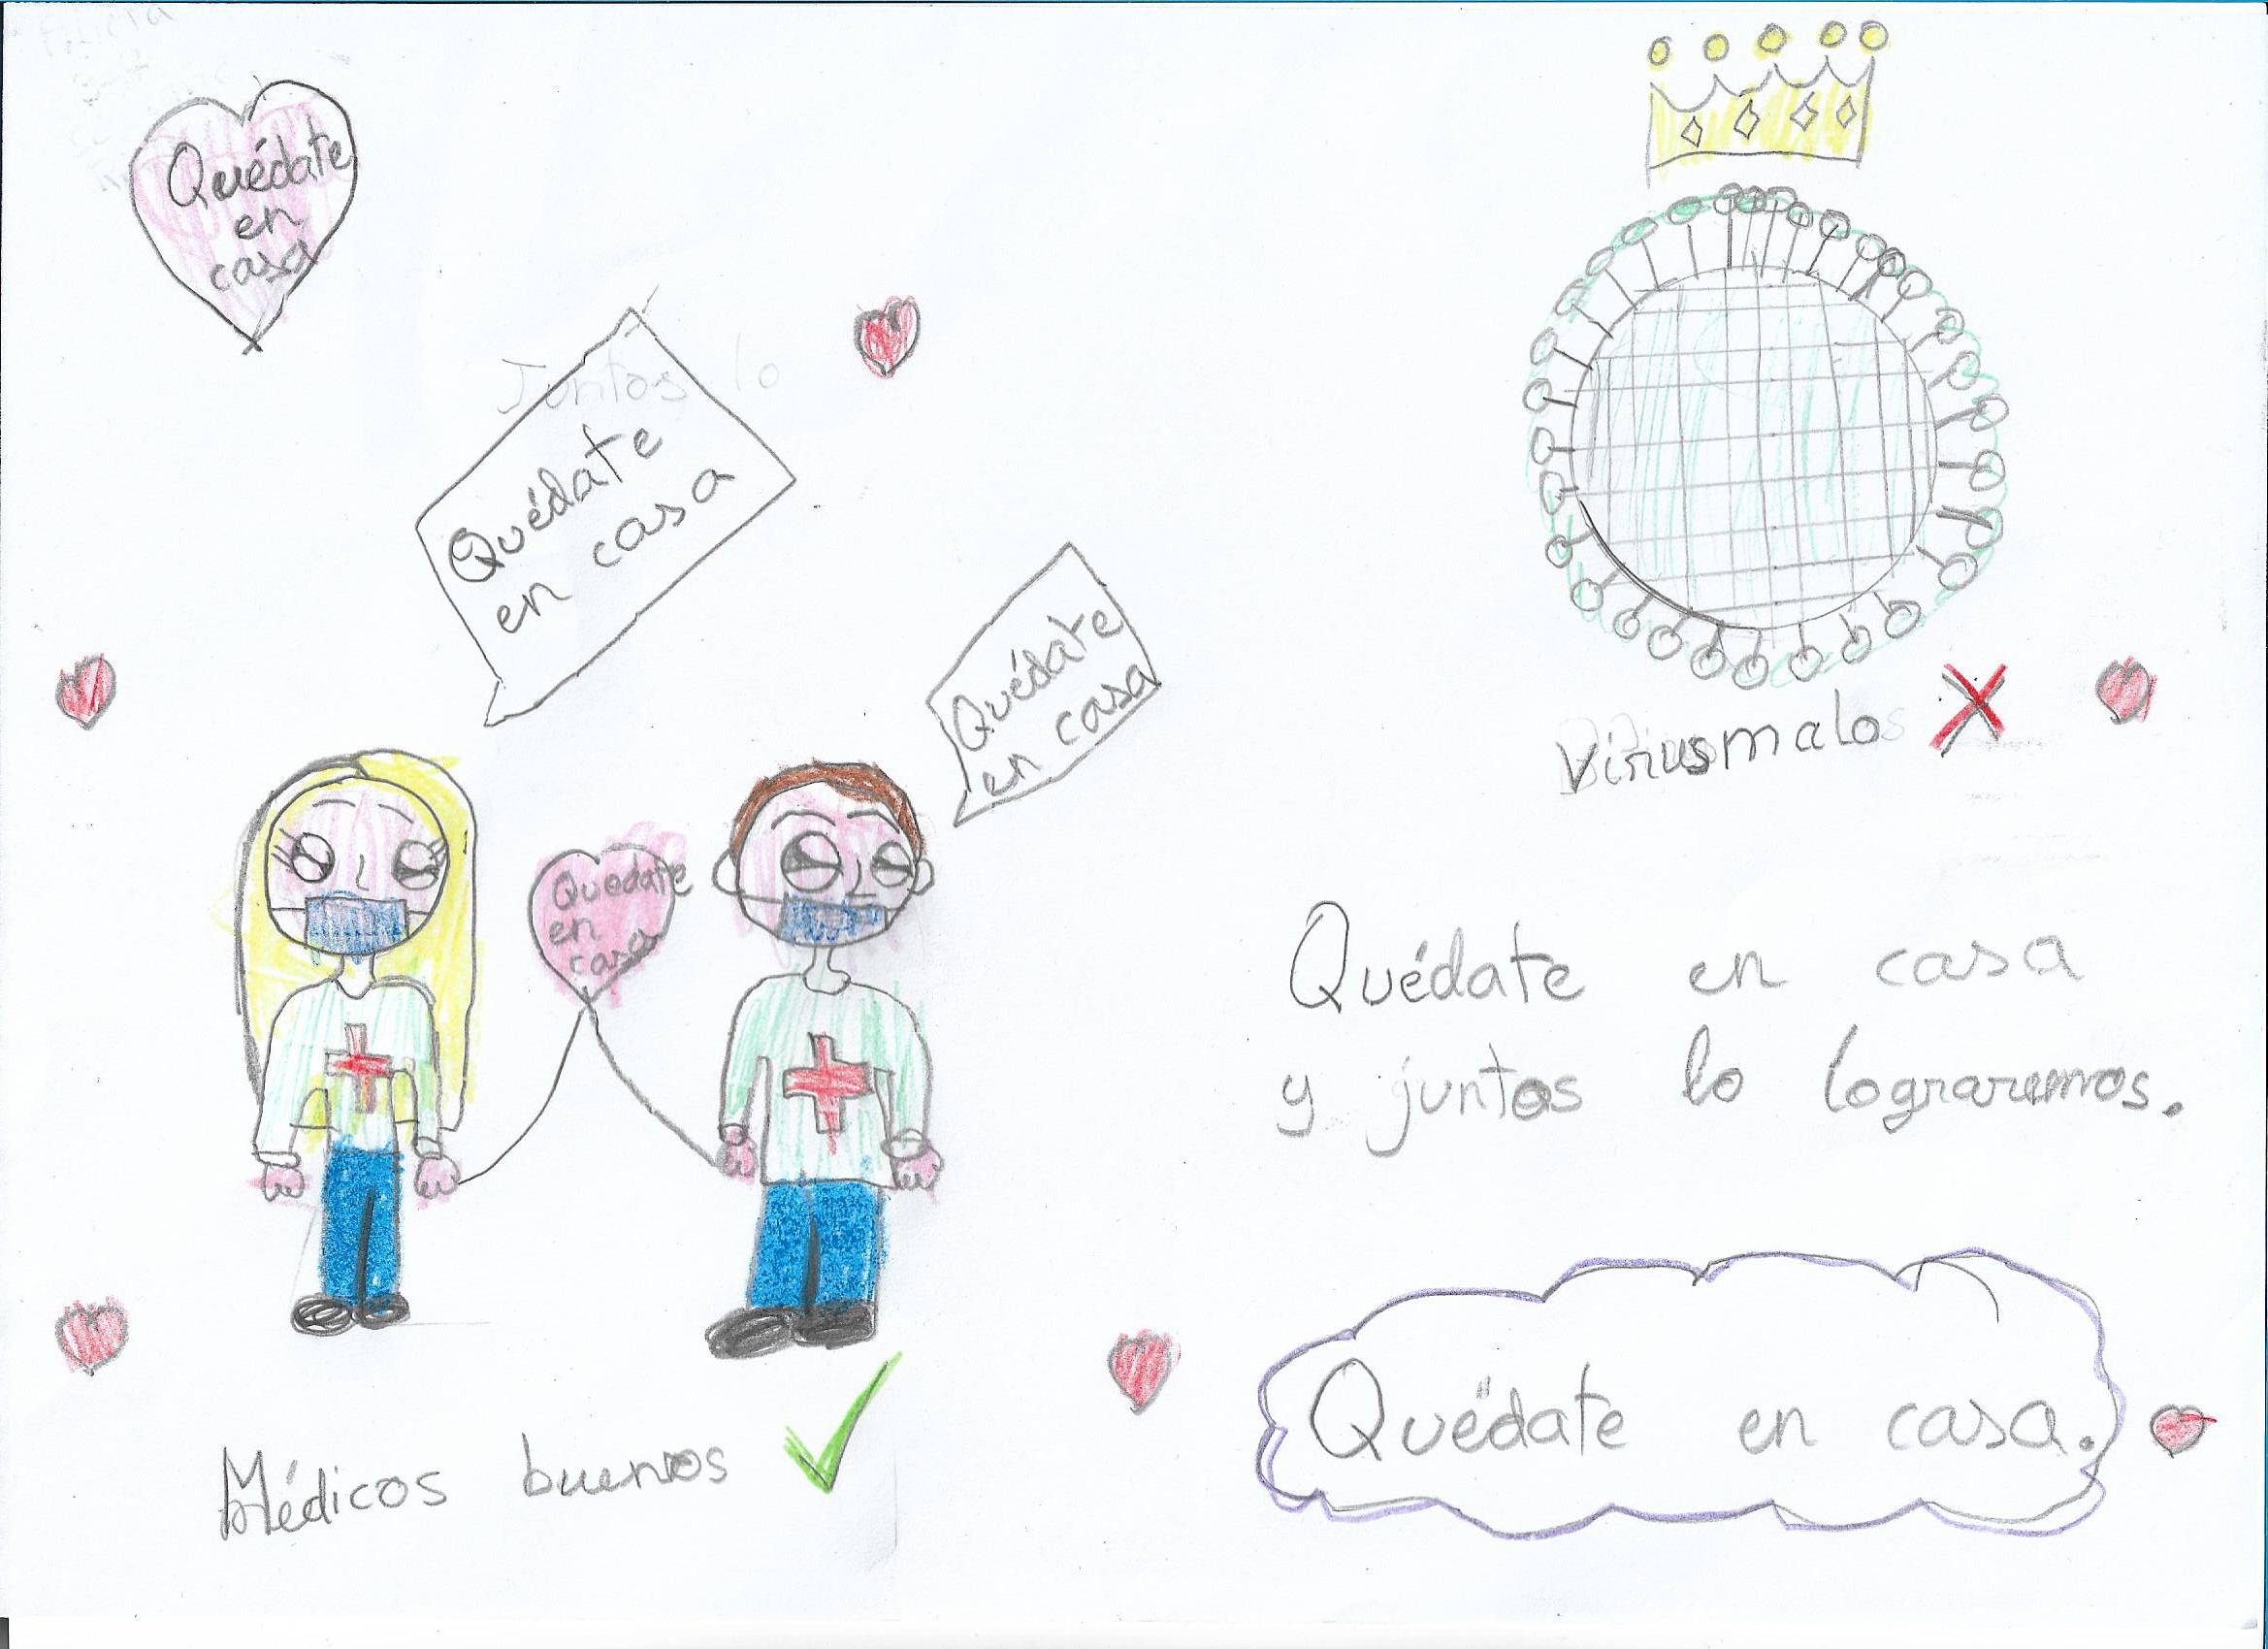 Quédate
en
casa
Juntos lo
Quédate
en casa
Quédate
en casa
Quedate
en
casa
Médicos buenos
Virus malo
Quédate en casa
y juntos lo lograremos.
Quédate en casa.